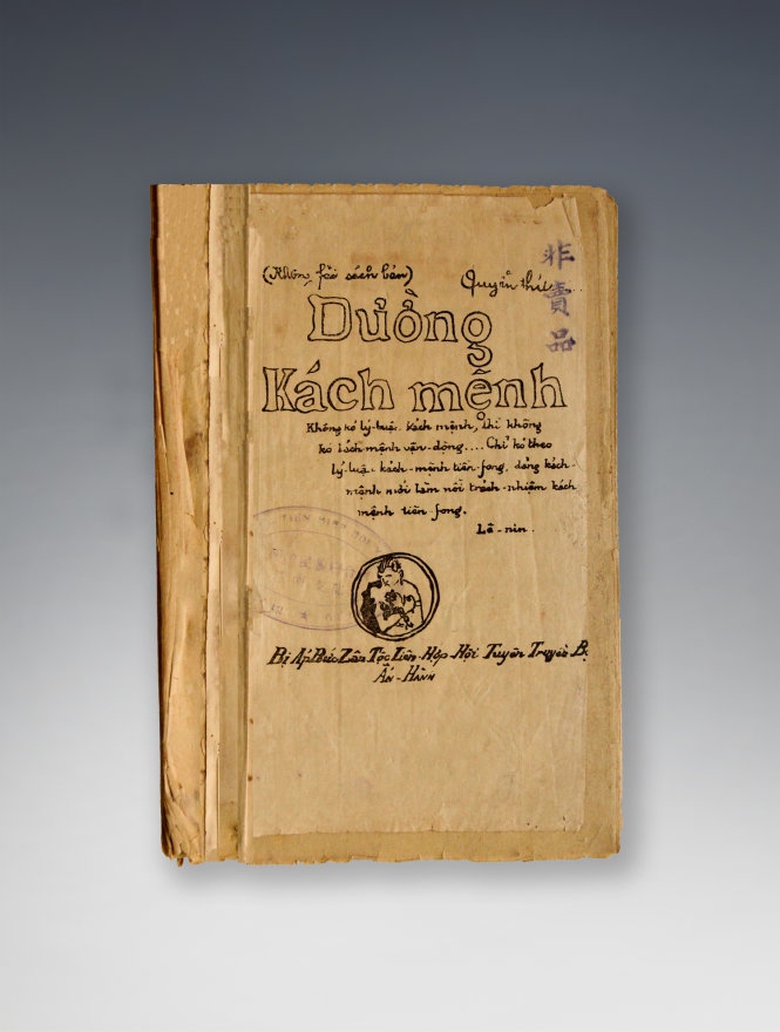 (Không fải sách bán)
Quyển thứ
非
賣
品
Đường
Kách mệnh
Không kó lý-luận kách mệnh, thì không
kó kách mệnh vận-động.... Chỉ kó theo
lý-luận kách-mệnh tiền-fong, đảng kách-
mệnh mới làm nổi trách-nhiệm kách
mệnh tiền-fong.
Lê-nin.
Bị Áp Bức Zân Tộc Liên-Hợp Hội Tuyên Truyền Bộ
Ấn-Hành